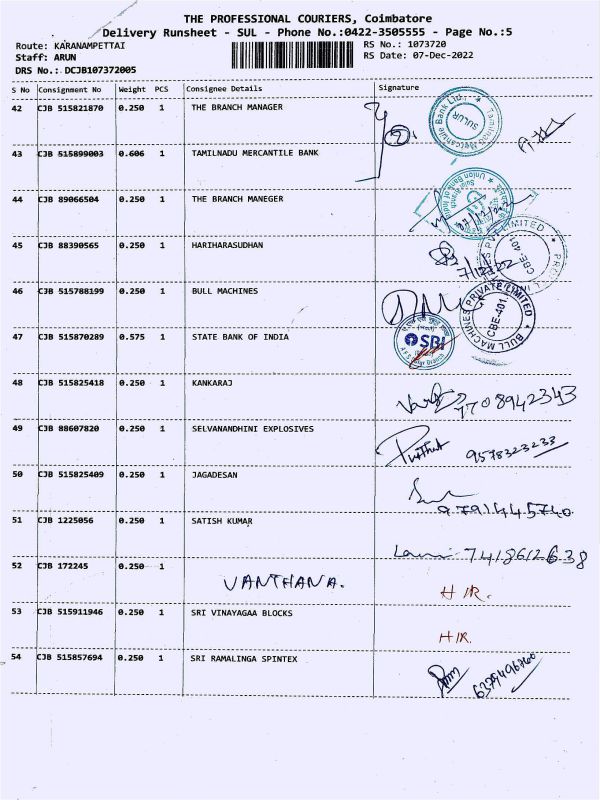 THE PROFESSIONAL COURIERS, Coimbatore
Delivery Runsheet - SUL - Phone No.:0422-3505555 - Page No.:5
Route: KARANAMPETTAI
RS No.: 1073720
Staff: ARUN
RS Date: 07-Dec-2022
DRS No.: DCJB107372005
S No Consignment No Weight PCS Consignee Details Signature
42 CJB 515821870 0.250 1 THE BRANCH MANAGER
Tamilnad Mercantile Bank Ltd.
SULUR
43 CJB 515899003 0.606 1 TAMILNADU MERCANTILE BANK
44 CJB 89066504 0.250 1 THE BRANCH MANEGER
Union Bank of India
45 CJB 88390565 0.250 1 HARIHARASUDHAN
7/12/22
PVT LIMITED
CBE-401
46 CJB 515788199 0.250 1 BULL MACHINES
BULL MACHINES PRIVATE LIMITED
CBE-401.
47 CJB 515870289 0.575 1 STATE BANK OF INDIA
SBI
48 CJB 515825418 0.250 1 KANKARAJ
7708942343
49 CJB 88607820 0.250 1 SELVANANDHINI EXPLOSIVES
9578323233
50 CJB 515825409 0.250 1 JAGADESAN
9791445740
51 CJB 1225056 0.250 1 SATISH KUMAR
7418612638
52 CJB 172245 0.250 1
VANTHANA.
H/R.
53 CJB 515911946 0.250 1 SRI VINAYAGAA BLOCKS
H/R.
54 CJB 515857694 0.250 1 SRI RAMALINGA SPINTEX
6379496760